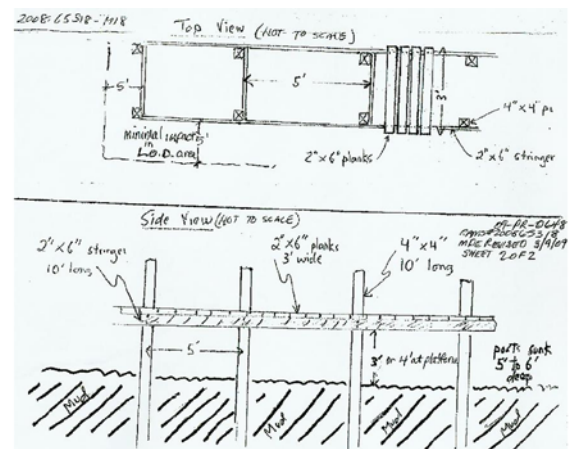 2008-65318-M18
Top View (NOT TO SCALE)
5'
5'
3'
minimal impacts
in
L.O.D. area
5'
4"x4" po
2"x6" planks
2"x6" stringer
Side View (NOT TO SCALE)
PR-0648
200865318
MDE REVISED 3/9/09
SHEET 2 OF 2
2"x6" stringer
10' long
2"x6" planks
3' wide
4"x4"
10' long
5'
3' or 4' at platform
posts sunk
5' to 6'
deep
Mud
Mud
Mud
Mud
Mud